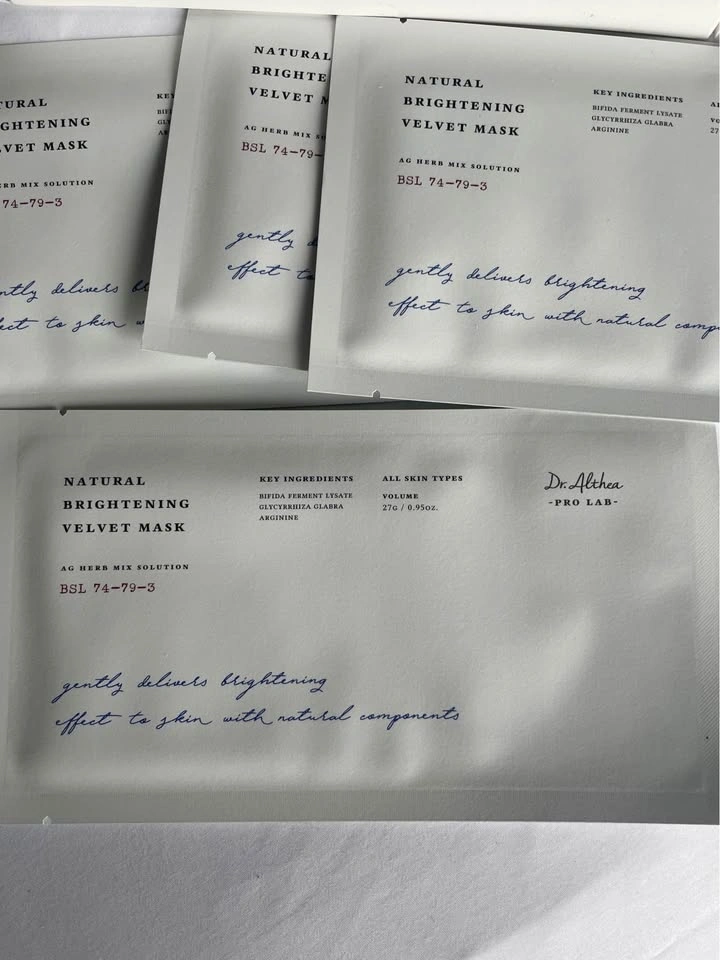 TURAL
GHTENING
LVET MASK
KEY
ERB MIX SOLUTION
74-79-3
ntly delivers
ect to skin
NATURAL
BRIGHTE
VELVET M
AG HERB MIX
BSL 74-79-
gently
effect to
NATURAL
BRIGHTENING
VELVET MASK
AG HERB MIX SOLUTION
BSL 74-79-3
KEY INGREDIENTS
BIFIDA FERMENT LYSATE
GLYCYRRHIZA GLABRA
ARGININE
gently delivers brightening
effect to skin with natural comp
NATURAL
BRIGHTENING
VELVET MASK
AG HERB MIX SOLUTION
BSL 74-79-3
KEY INGREDIENTS
BIFIDA FERMENT LYSATE
GLYCYRRHIZA GLABRA
ARGININE
ALL SKIN TYPES
VOLUME
27G / 0.95OZ.
Dr.Althea
-PRO LAB-
gently delivers brightening
effect to skin with natural components